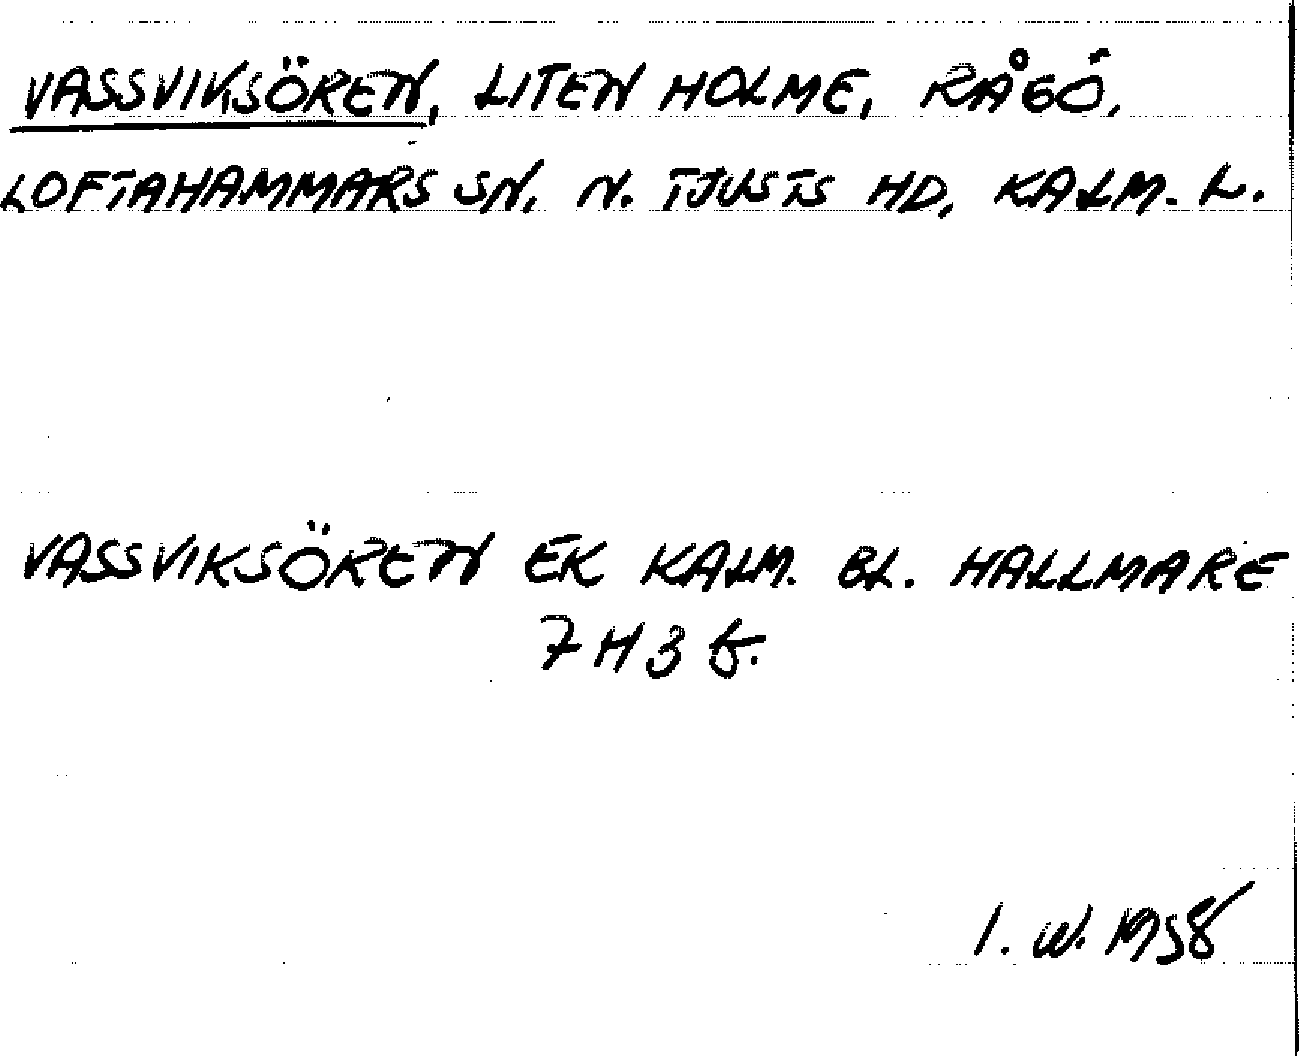 VASSVIKSÖREN, LITEN HOLME, RÅGÖ,
LOFTAHAMMARS SN, N. TJUSTS HD, KALM. L.
VASSVIKSÖREN EK KALM. BL. HALLMARE
7H3 b.
I. W. 1958